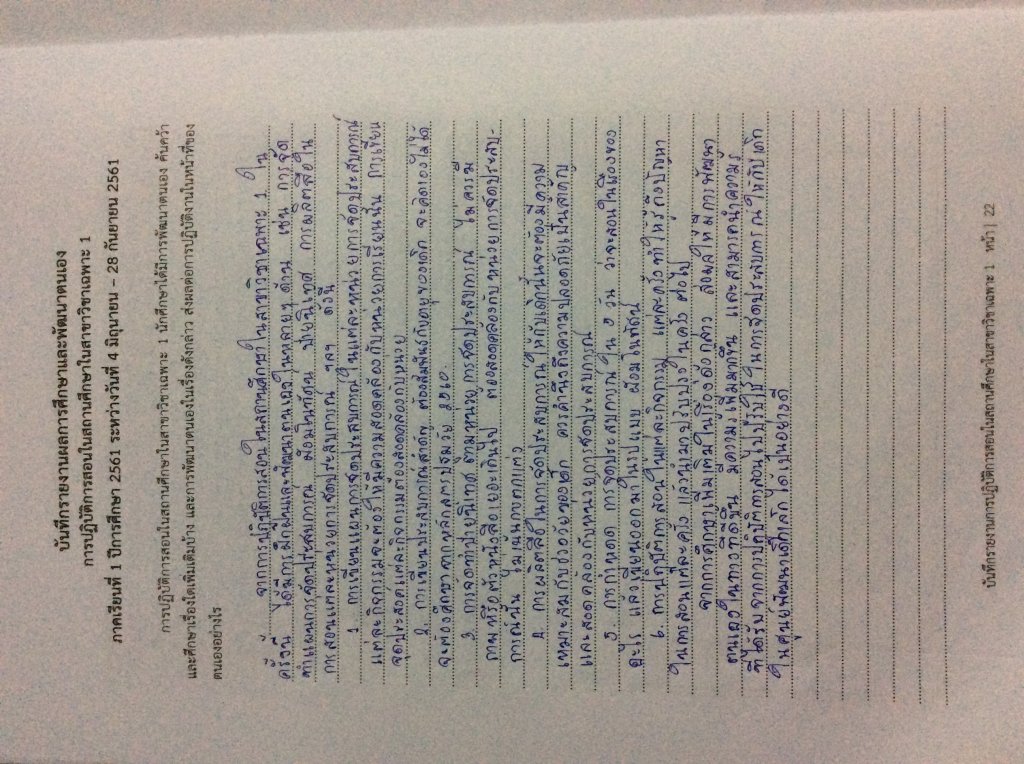 บันทึกรายงานผลการศึกษาและพัฒนาตนเอง
การปฏิบัติการสอนในสถานศึกษาในสาขาวิชาเฉพาะ 1
ภาคเรียนที่ 1 ปีการศึกษา 2561 ระหว่างวันที่ 4 มิถุนายน – 28 กันยายน 2561
การปฏิบัติการสอนในสถานศึกษาในสาขาวิชาเฉพาะ 1 นักศึกษาได้มีการพัฒนาตนเอง ค้นคว้า
และศึกษาเรื่องใดเพิ่มเติมบ้าง และการพัฒนาตนเองในเรื่องดังกล่าว ส่งผลต่อการปฏิบัติงานในหน้าที่ของ
ตนเองอย่างไร
จากการปฏิบัติการสอนในสถานศึกษาในสาขาวิชาเฉพาะ 1 ใน
ครั้งนี้ ได้มีการฝึกฝนและพัฒนาตนเองในหลายๆ ด้าน เช่น การจัด
ทำแผนการจัดประสบการณ์ ป้ายนิเทศ การผลิตสื่อใน
การสอนแต่ละหน่วยการจัดประสบการณ์ ฯลฯ ดังนี้
1. การเขียนแผนการจัดประสบการณ์ในแต่ละหน่วยการจัดประสบการณ์
แต่ละกิจกรรมจะต้องให้มีความสอดคล้องกับหน่วยการเรียนนั้น การเขียน
จุดประสงค์แต่ละกิจกรรมต้องสอดคล้องกับหน่วย
2. การเขียนประสบการณ์สำคัญ ต้องสัมพันธ์กับอายุของเด็ก จะคิดเองไม่ได้
จะต้องศึกษาจากหลักสูตรปฐมวัย 2560
3. การจัดทำป้ายนิเทศ ตามหน่วยการจัดประสบการณ์ ไม่ควรมี
ภาพหรือตัวหนังสือเยอะเกินไป ต้องสอดคล้องกับหน่วยการจัดประสบ-
การณ์นั้น
4. การผลิตสื่อในการจัดประสบการณ์ให้กับเด็กนั้นจะต้องมีความ
เหมาะสมกับช่วงวัยของเด็ก ควรคำนึงถึงความปลอดภัยเป็นสำคัญ
และสอดคล้องกับหน่วยการจัดประสบการณ์
5. การกำหนด การจัดประสบการณ์ ใน วัน ว่าจะสอนในเรื่องของ
อะไร แล้วเขียนออกมาในรูปแบบ
6. การปฏิบัติการสอนในแต่ละกิจกรรม แต่ละครั้งทำให้รู้ถึงปัญหา
ในการสอนแต่ละครั้ง แล้วนำมาปรับปรุงในครั้งต่อไป
จากการศึกษาเพิ่มเติมในเรื่องดังกล่าว ส่งผลให้มีการพัฒนา
ตนเองในทางที่ดีขึ้น มีความรู้เพิ่มมากขึ้น และสามารถนำความรู้
ที่ได้รับจากการปฏิบัติการสอนไปปรับใช้ในการจัดประสบการณ์ให้กับเด็ก
ในศูนย์พัฒนาเด็กเล็กได้เป็นอย่างดี
บันทึกรายงานการปฏิบัติการสอนในสถานศึกษาในสาขาวิชาเฉพาะ 1 หน้า | 22